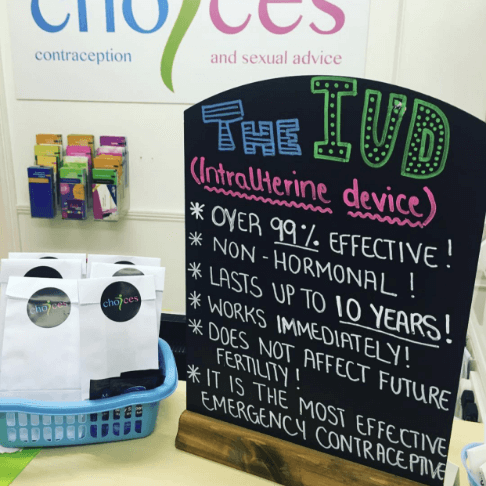 choices
contraception and sexual advice
THE IUD
(IntraUterine device)
* OVER 99% EFFECTIVE!
* NON-HORMONAL!
* LASTS UP TO 10 YEARS!
* WORKS IMMEDIATELY!
* DOES NOT AFFECT FUTURE
FERTILITY!
* IT IS THE MOST EFFECTIVE
EMERGENCY CONTRACEPTIVE
choices
choices